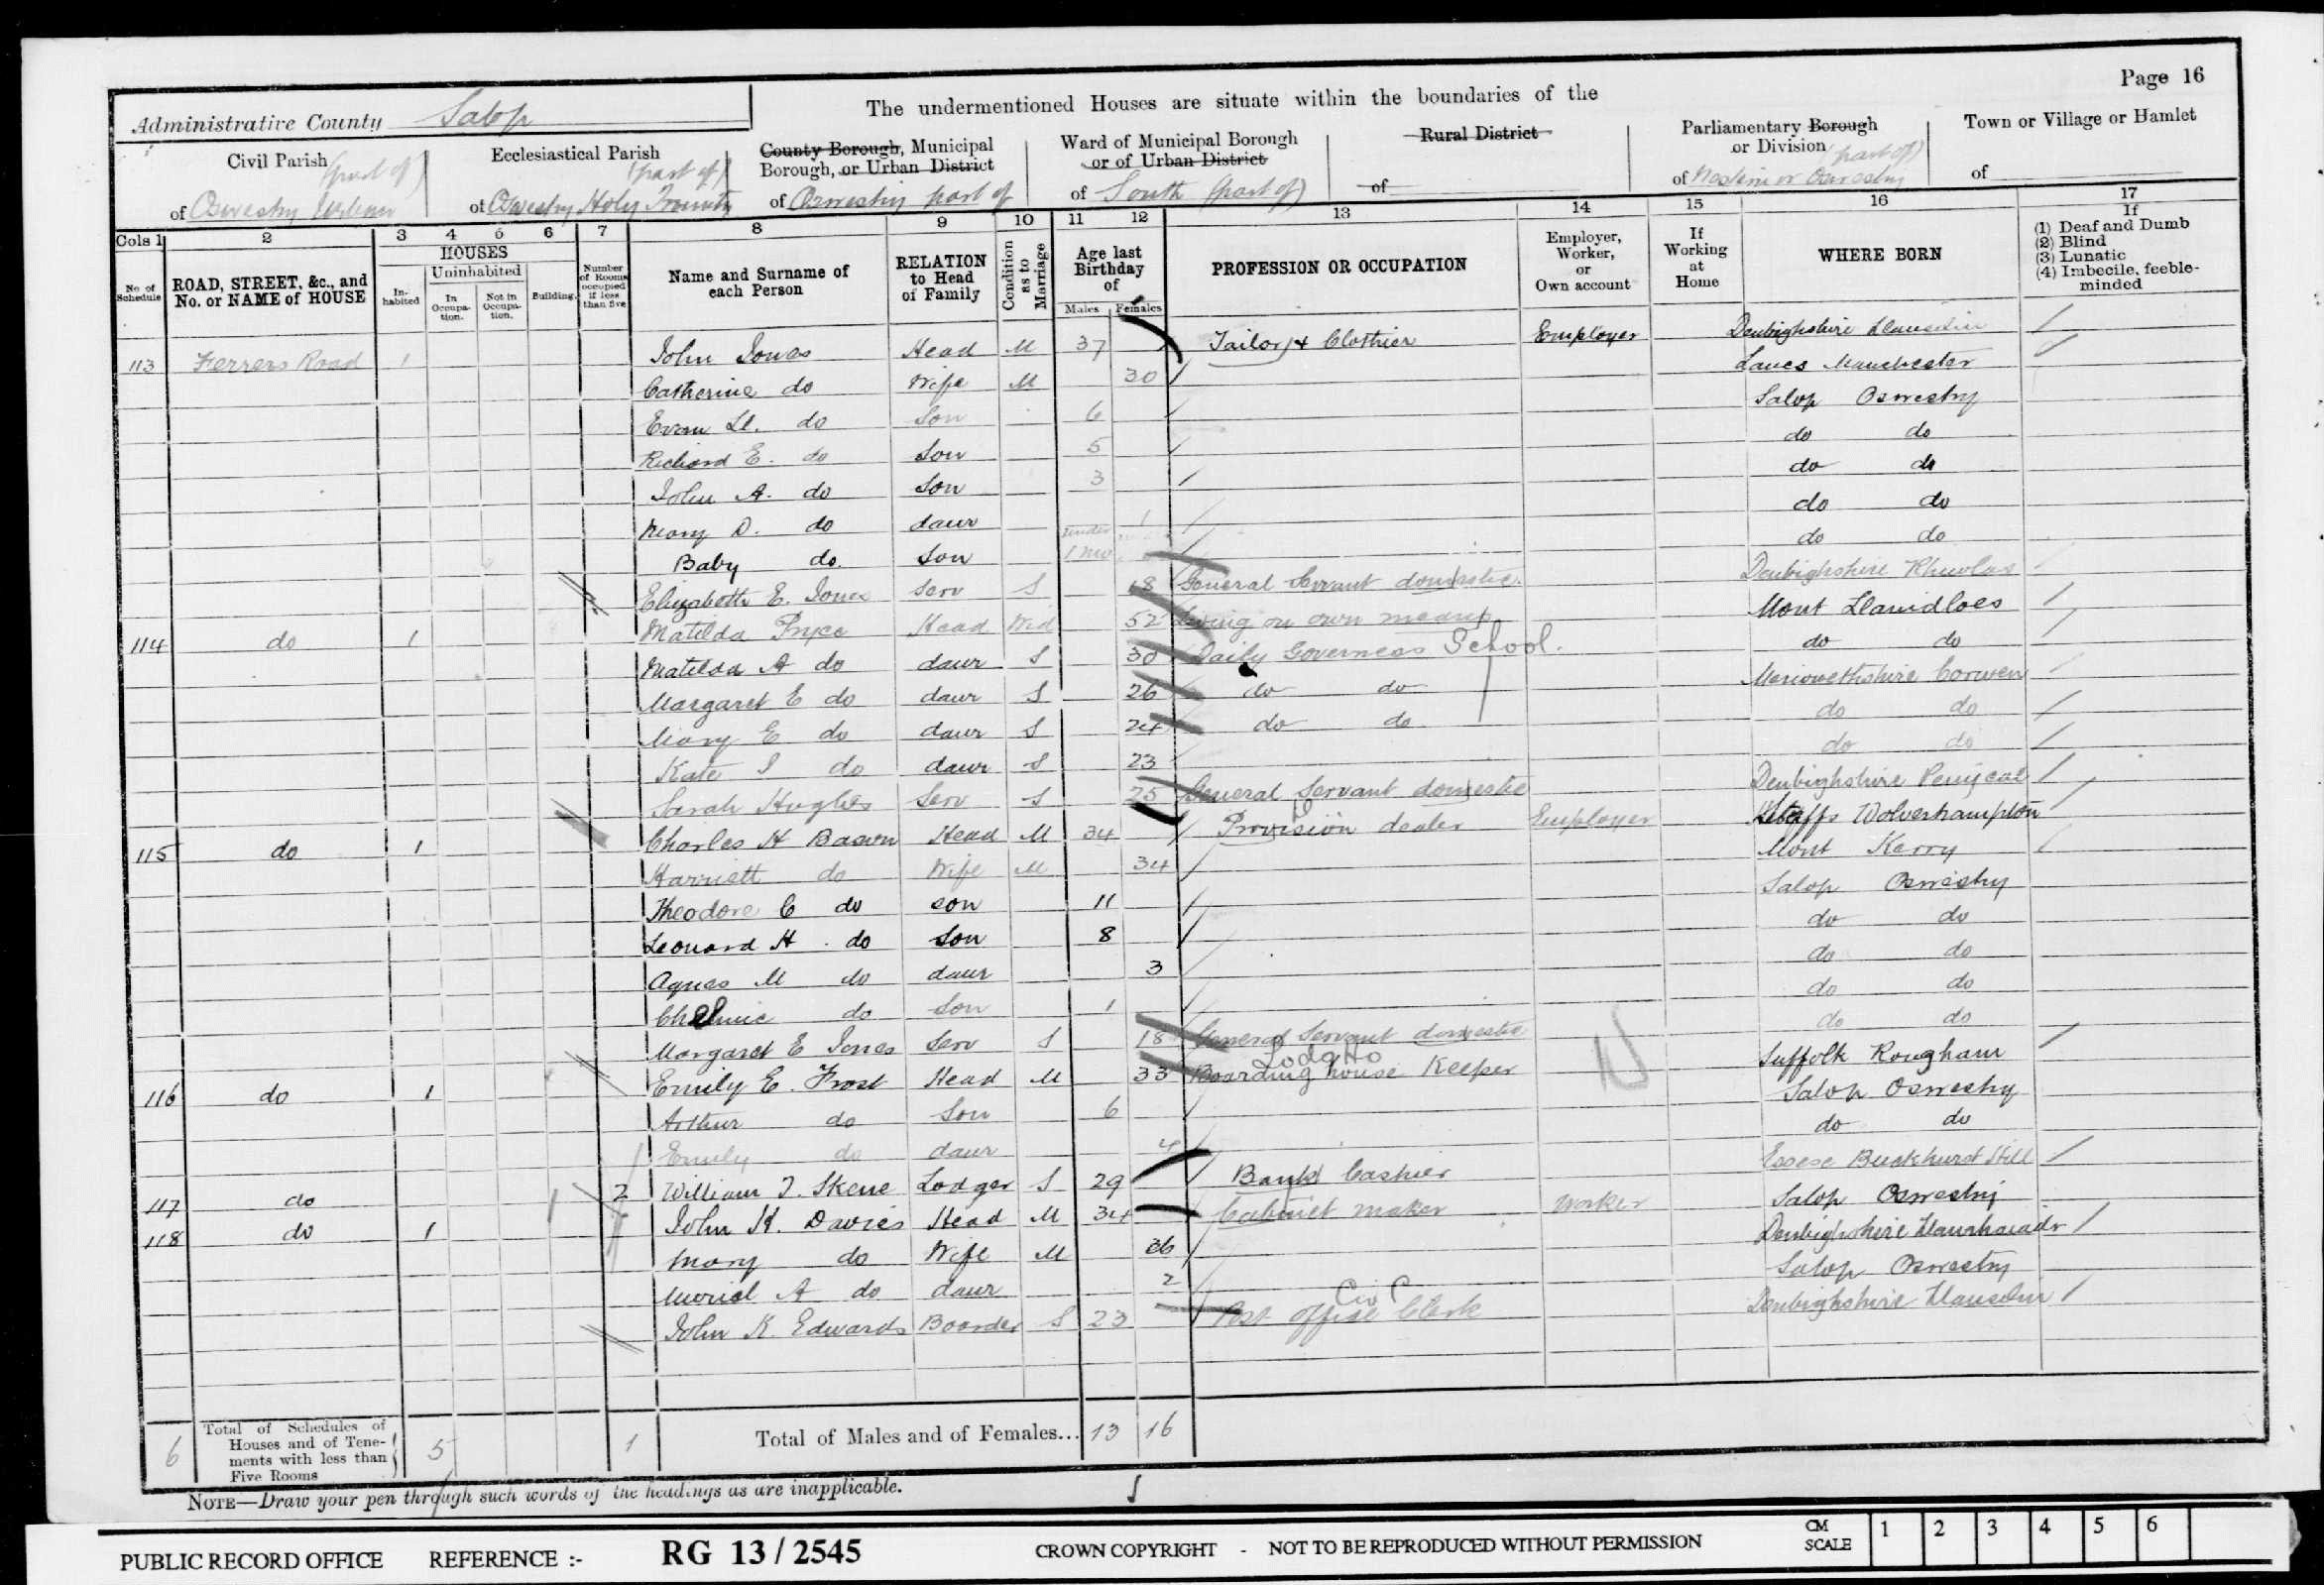 Page 16
Administrative County Salop
The undermentioned Houses are situate within the boundaries of the
Civil Parish (part of)
of Oswestry Urban
Ecclesiastical Parish (part of)
of Oswestry Holy Trinity
County Borough, Municipal
Borough, or Urban District
of Oswestry part of
Ward of Municipal Borough
or of Urban District
of South (part of)
Rural District
of
Parliamentary Borough
or Division (part of)
of Western or Oswestry
Town or Village or Hamlet
of
Cols 1 2 3 4 5 6 7 8 9 10 11 12 13 14 15 16 17
No of Schedule
ROAD, STREET, &c., and No. or NAME of HOUSE
HOUSES
Inhabited
Uninhabited
In Occupation.
Not in Occupation.
Building.
Number of Rooms occupied if less than five
Name and Surname of each Person
RELATION to Head of Family
Condition as to Marriage
Age last Birthday of
Males Females
PROFESSION OR OCCUPATION
Employer, Worker, or Own account
If Working at Home
WHERE BORN
If
(1) Deaf and Dumb
(2) Blind
(3) Lunatic
(4) Imbecile, feeble-minded
113 Ferrers Road 1 John Jones Head M 37 Tailor & Clothier Employer Denbighshire Llansilin
Catherine do Wife M 30 Lancs Manchester
Evan Ll. do Son 6 Salop Oswestry
Richard E. do Son 5 do do
John A. do Son 3 do do
Mary D. do daur 1 do do
Baby do. Son under 1 mo do do
Elizabeth E. Jones Serv S 18 General Servant domestic. Denbighshire
114 do 1 Matilda Pryce Head Wid 52 Living on own means Mont Llanidloes
Matilda A do daur S 30 Daily Governess School. do do
Margaret E do daur S 26 do do Merionethshire Corwen
Mary E do daur S 24 do do do do
Kate J do daur S 23 do do
Sarah Hughes Serv S 25 General Servant domestic Denbighshire
115 do 1 Charles H Bason Head M 34 Provision dealer Employer Staffs Wolverhampton
Harriett do Wife M 34 Mont Kerry
Theodore C do son 11 Salop Oswestry
Leonard H. do Son 8 do do
Agnes M do daur 3 do do
do Son 1 do do
Margaret E Jones Serv S 18 General Servant domestic do do
Lodg Ho
116 do 1 Emily E. Frost Head M 33 Boarding house Keeper Suffolk Rougham
Arthur do Son 6 Salop Oswestry
Emily do daur 4 do do
117 do 2 William J. Skene Lodger S 29 Bank Cashier Essex Buckhurst Hill
118 do 1 John H. Davies Head M 34 Cabinet maker Worker Salop Oswestry
Mary do Wife M 36 Denbighshire
Muriel A do daur 2 Salop Oswestry
John K. Edwards Boarder S 23 Post Office Clerk Denbighshire Llansilin
6 Total of Schedules of Houses and of Tenements with less than Five Rooms 5 1 Total of Males and of Females... 13 16
NOTE—Draw your pen through such words of the headings as are inapplicable.
PUBLIC RECORD OFFICE REFERENCE :- RG 13 / 2545 CROWN COPYRIGHT - NOT TO BE REPRODUCED WITHOUT PERMISSION CM SCALE 1 2 3 4 5 6